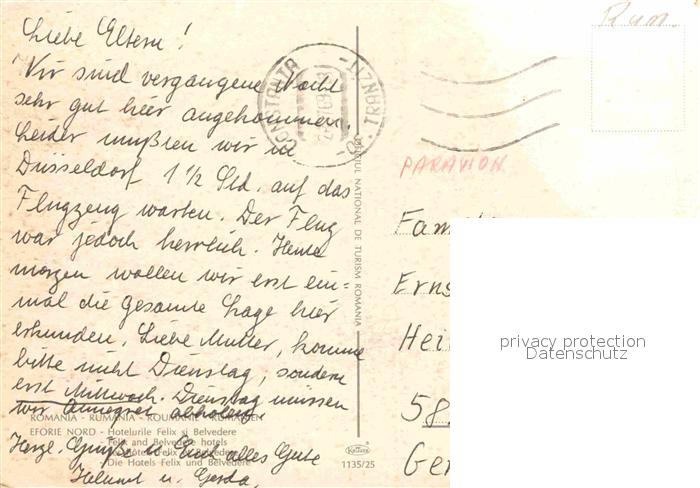 Liebe Eltern!
Wir sind vergangene Nacht
sehr gut hier angekommen,
leider mußten wir in
Düsseldorf 1 1/2 Std. auf das
Flugzeug warten. Der Flug
war jedoch herrlich. Heute
morgen wollen wir erst ein=
mal die gesamte Lage hier
erkunden. Liebe Mutter, komme
bitte nicht Dienstag, sondern
erst Mittwoch. Dienstag müssen
wir Annegret abholen.
ROMANIA - RUMANIA - ROUMANIE - RUMÄNIEN
EFORIE NORD - Hotelurile Felix si Belvedere
Felix and Belvedere hotels
Felix et Belvedere
Die Hotels Felix und Belvedere
Herzl. Grüße u. Euch alles Gute
Helmut u. Gerda.
CONSTANTA
NATIONAL DE TURISM ROMANIA
1135/25
Rum.
PAR AVION
Fam
Erns
Hei
58
Ger
privacy protection
Datenschutz